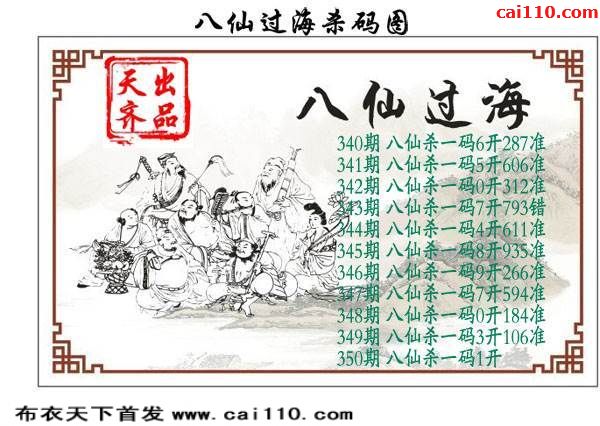 八仙过海杀码图
cai110.com
天出
齐品
八仙过海
340期 八仙杀一码6开287准
341期 八仙杀一码5开606准
342期 八仙杀一码0开312准
343期 八仙杀一码7开793错
344期 八仙杀一码4开611准
345期 八仙杀一码8开935准
346期 八仙杀一码9开266准
347期 八仙杀一码7开594准
348期 八仙杀一码0开184准
349期 八仙杀一码3开106准
350期 八仙杀一码1开
布衣天下首发 www.cai110.com